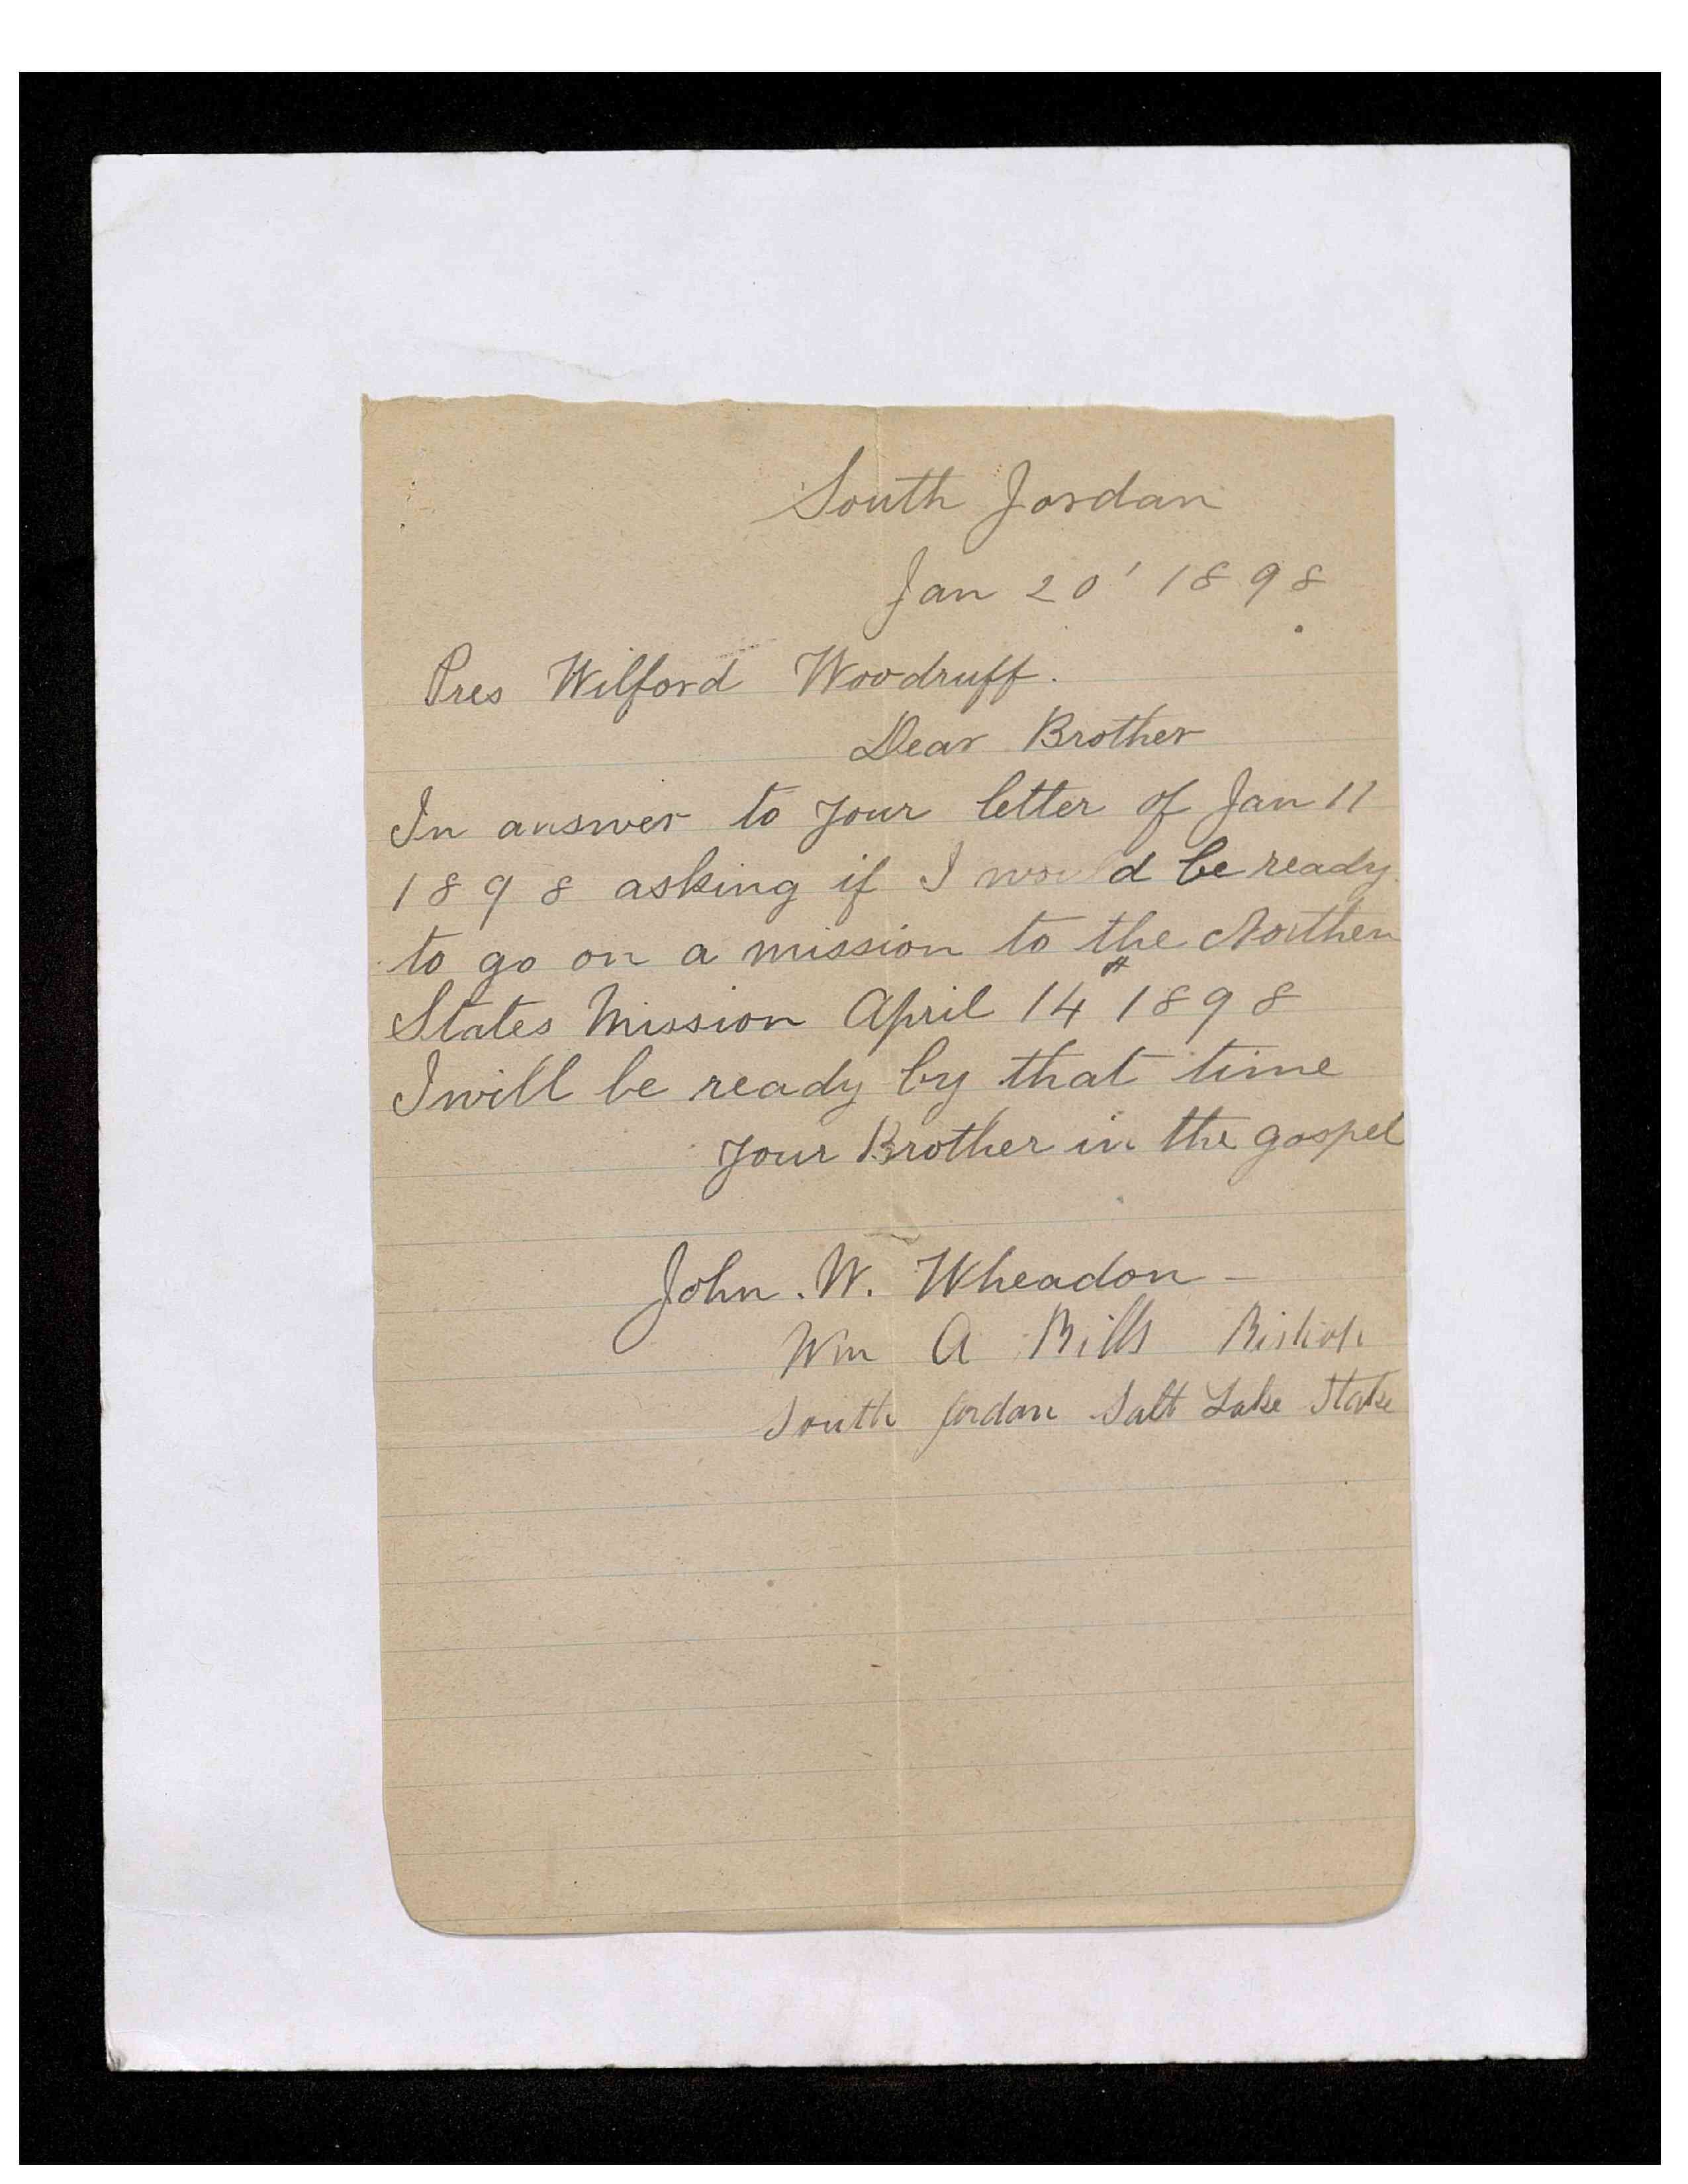 South Jordan
Jan 20' 1898
Pres Wilford Woodruff.
Dear Brother
In answer to your letter of Jan 11
1898 asking if I would be ready
to go on a mission to the Northen
States Mission April 14th 1898
I will be ready by that time
your Brother in the gospel
John. W. Wheadon -
Wm A Bills Bishop
South Jordan Salt Lake Stake